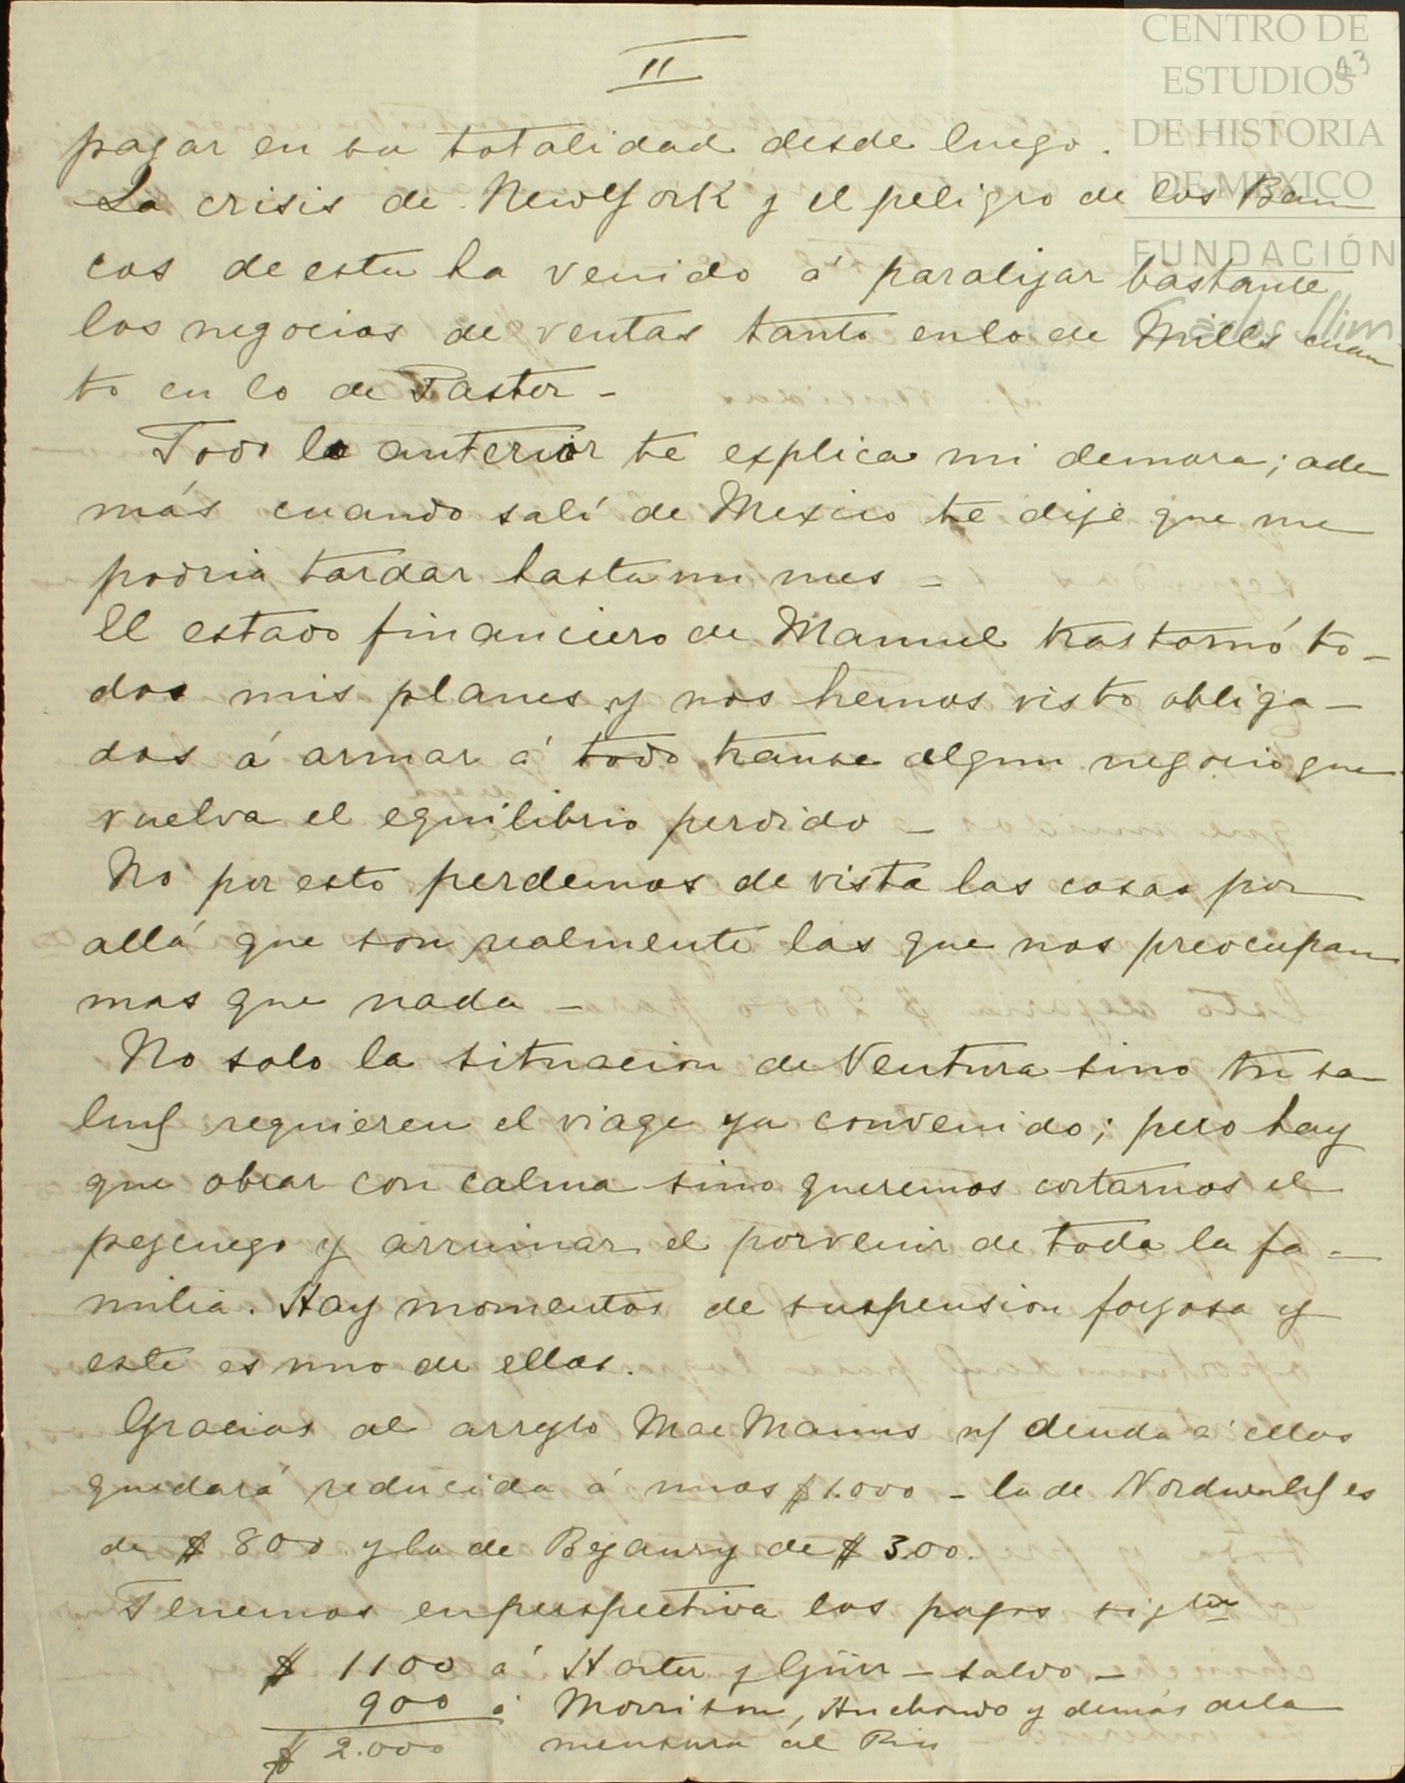 II
CENTRO DE
ESTUDIOS
DE HISTORIA
DE MEXICO
FUNDACIÓN
Carlos Slim
pagar en su totalidad desde luego.
La crisis de New York y el peligro de los Ban
cos de esta ha venido á paralizar bastante
los negocios de ventas tanto en lo de Mills cuan
to en lo de Pastor -
Todo lo anterior te explica mi demora; ade
más cuando salí de Mexico te dije que me
podria tardar hasta un mes -
El estado financiero de Manuel trastornó to-
dos mis planes y nos hemos visto obliga-
dos á armar á todo trance algun negocio que
vuelva el equilibrio perdido -
No por esto perdemos de vista las cosas por
allá que son realmente las que nos preocupan
mas que nada -
No solo la situacion de Ventura sino tu sa-
lud requieren el viage ya convenido; pero hay
que obrar con calma sino queremos cortarnos el
pezcuezo y arruinar el porvenir de toda la fa-
milia. Hay momentos de suspension forzosa y
este es uno de ellos.
Gracias al arreglo MacManus n/ deuda á ellos
quedará reducida á unos $1.000 - la de Nordwald es
de $ 800 y la de Bezaury de $ 300.
Tenemos en perspectiva los pagos sigtes
$ 1100 á Harter y - salvo -
900 á Morrison, Anchondo y demás de la
$ 2.000 mensura al Rio